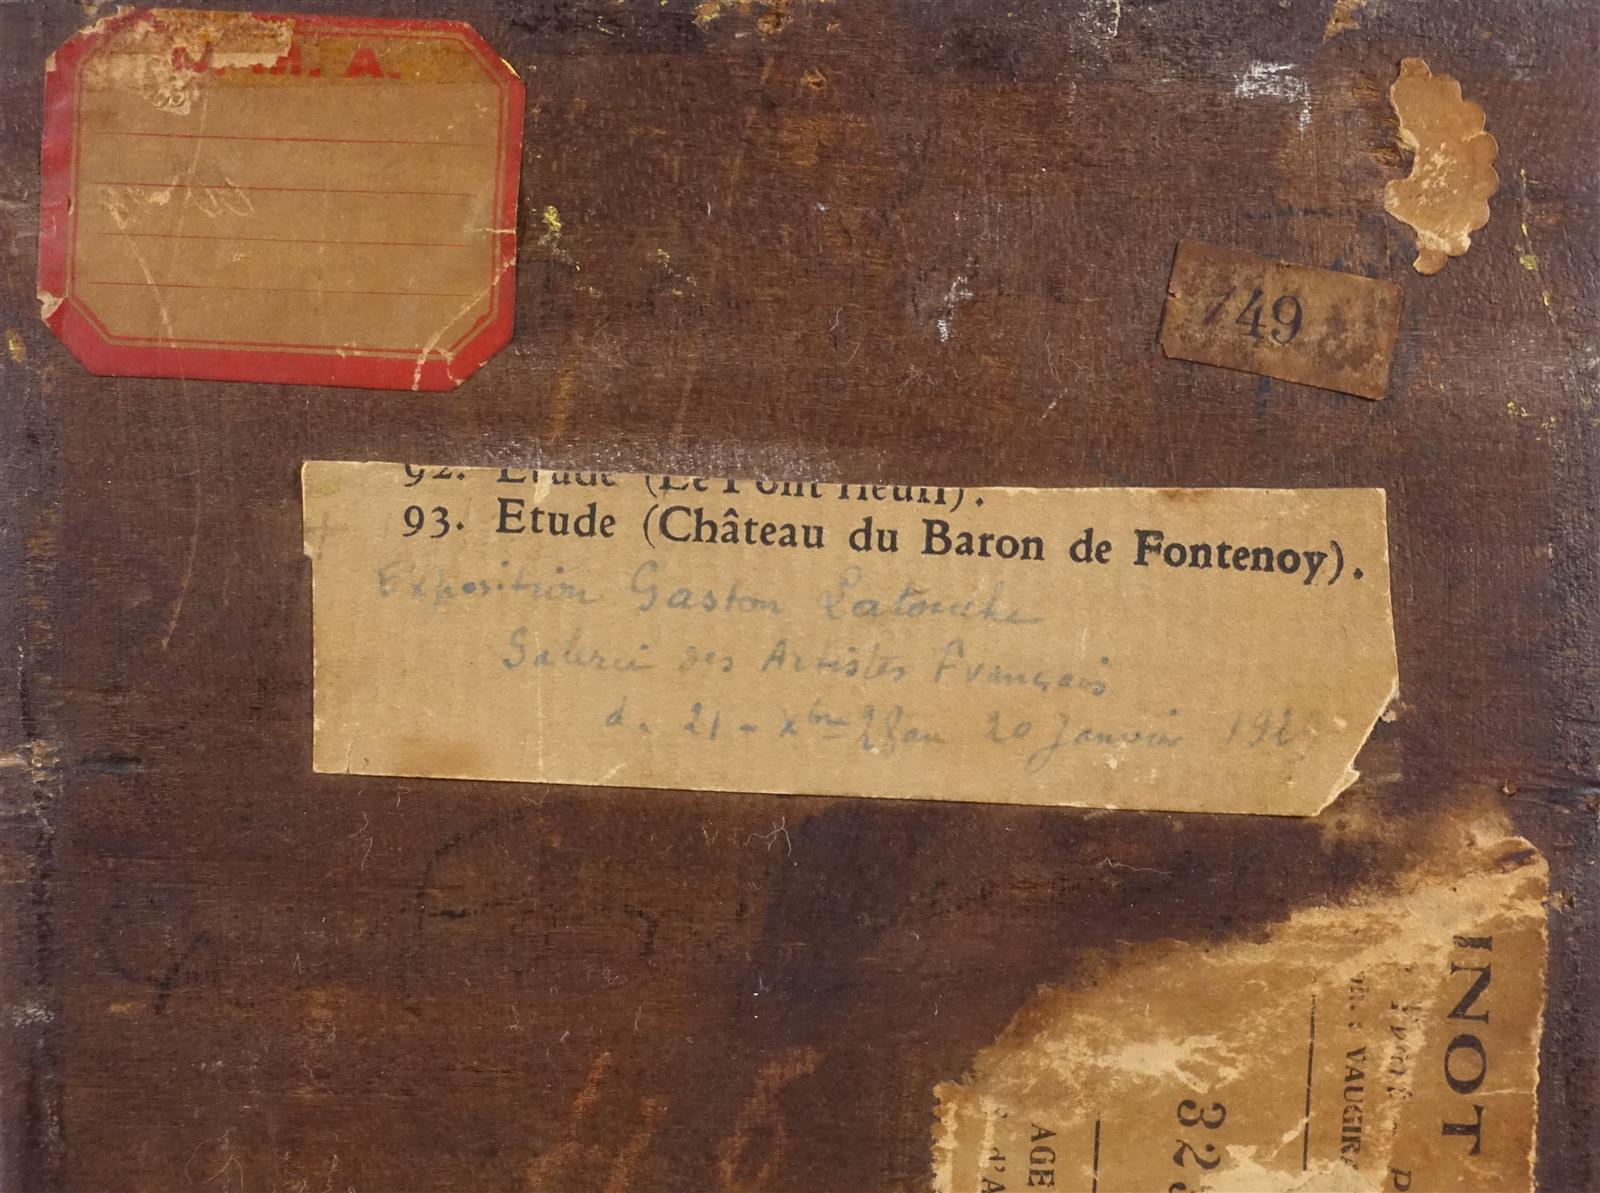 A.
149
92. Etude (Le Pont fleuri).
93. Etude (Château du Baron de Fontenoy).
Exposition Gaston Latouche
Galerie des Artistes Français
d. 21 - Xbre 28 au 20 Janvier 192
INOT
ph. : VAUGIR
32
AGE
d'A